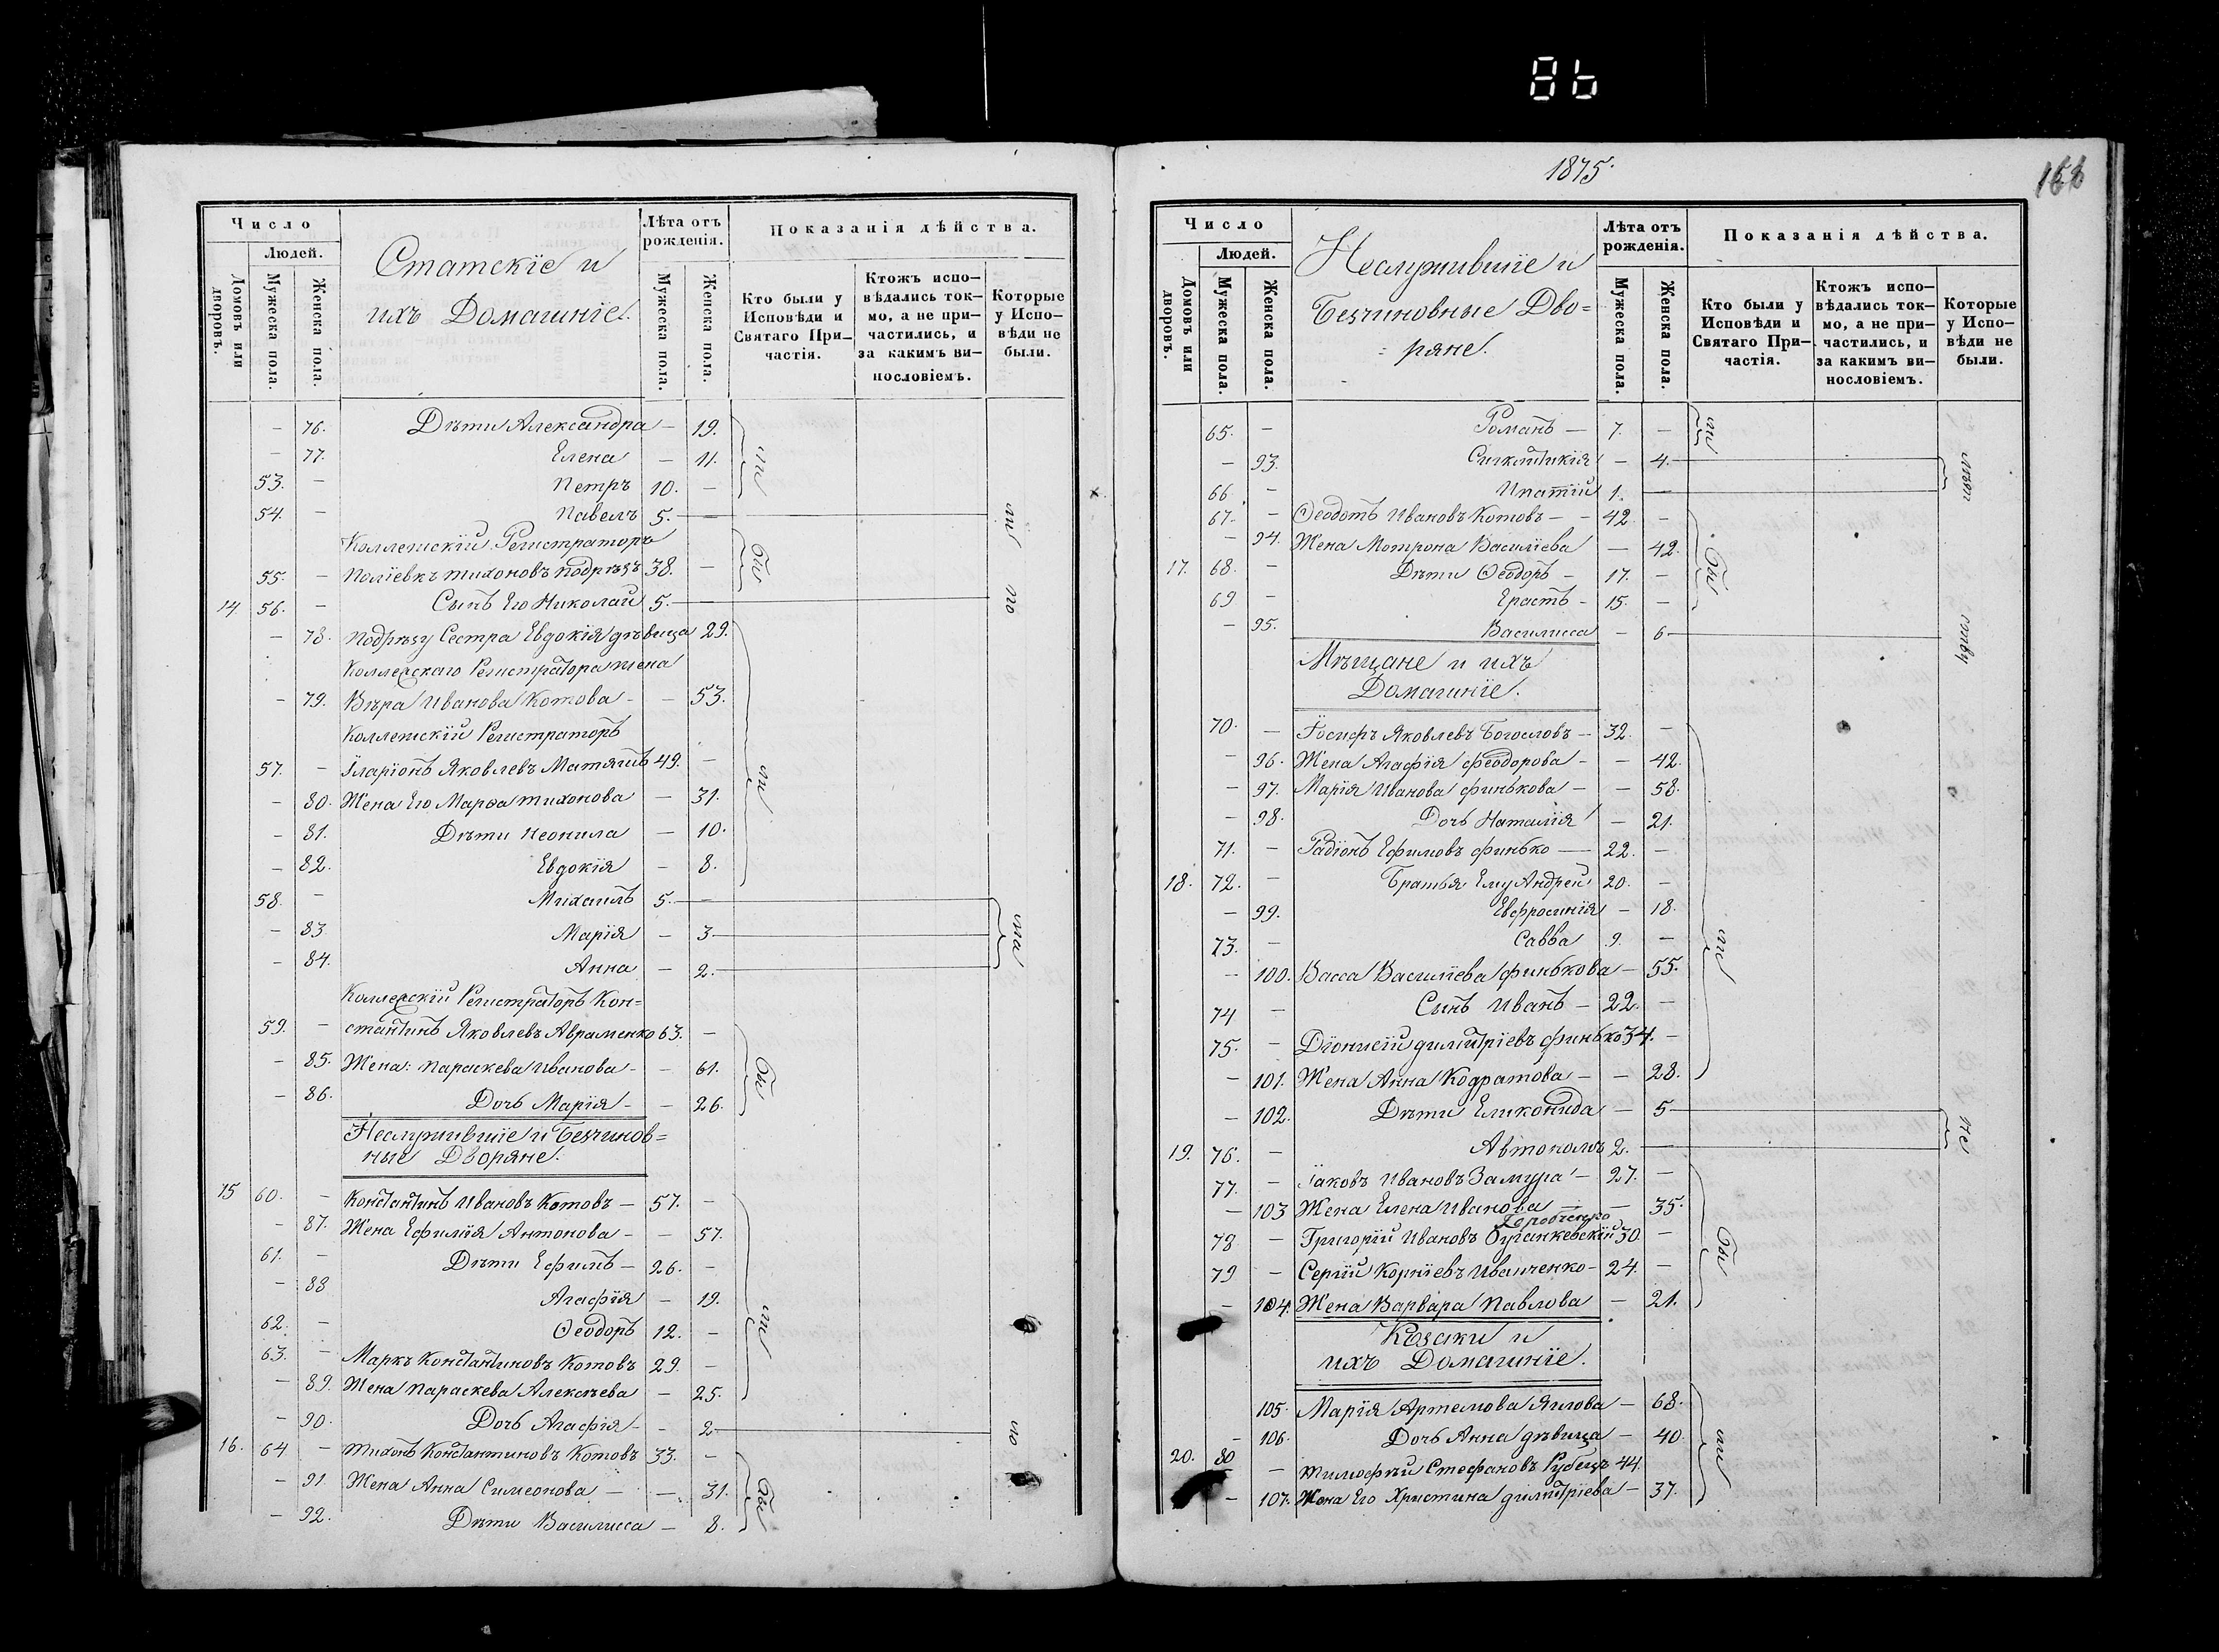 86
Число
Людей.
Домовъ или дворовъ.
Мужеска пола.
Женска пола.
Статскіе и
ихъ Домашніе.
Лѣта отъ рожденія.
Мужеска пола.
Женска пола.
Показанія дѣйства.
Кто были у Исповѣди и Святаго При-частія.
Ктожъ испо-вѣдались ток-мо, а не при-частились, и за какимъ ви-нословіемъ.
Которые у Испо-вѣди не были.
– 76. Дѣти Александра – 19.
– 77. Елена – 11.
53. – Петръ 10. –
54. – Павелъ 5. –
Коллежскій Регистраторъ
55. – Поліевкъ Тихоновъ Подрѣзъ 38. –
14. 56. – Сынъ Его Николай 5.
– 78. Подрѣзу Сестра Евдокія дѣвица 29.
Коллежскаго Регистратора жена
– 79. Вѣра Иванова Котова – – 53.
Коллежскій Регистраторъ
57. – Іларіонъ Яковлевъ Матяшъ 49. –
– 80. Жена Его Марѳа Тихонова – 31.
– 81. Дѣти Неонила – 10.
– 82. Евдокія – 8.
58. – Михаилъ 5. –
– 83 Марія – 3
– 84. Анна – 2.
Коллежскій Регистраторъ Кон=
59. – стантинъ Яковлевъ Авраменко 63. –
– 85. Жена: Параскева Иванова – – 61.
– 86. Дочь Марія – – 26.
Неслужившіе и Безчинов=
ные Дворяне.
15 60. – Константинъ Ивановъ Котовъ – 57. –
– 87. Жена Ефимія Антонова – – 57.
61. – Дѣти Ефимъ – 26. –
– 88 Агафія – 19.
62. – Ѳеодоръ 12. –
63. – Маркъ Константиновъ Котовъ 29. –
– 89. Жена Параскева Алексѣева – 25.
– 90. Дочь Агафія – – 2
16. 64 – Тихонъ Константиновъ Котовъ 33. –
– 91. Жена Анна Симеонова – – 31.
– 92. Дѣти Василисса – 8.
ли
бы
ли
бы
ли
бы
ли
по
1875.
Число
Людей.
Домовъ или дворовъ.
Мужеска пола.
Женска пола.
Неслужившіе и
Безчиновные Дво=
=ряне.
Лѣта отъ рожденія.
Мужеска пола.
Женска пола.
Показанія дѣйства.
Кто были у Исповѣди и Святаго При-частія.
Ктожъ испо-вѣдались ток-мо, а не при-частились, и за какимъ ви-нословіемъ.
Которые у Испо-вѣди не были.
65. – Романъ – 7. –
– 93. Сигклитикія – 4.
66. – Ипатій 1.
67. – Ѳеодотъ Ивановъ Котовъ – – 42 –
– 94. Жена Мотрона Василіева – 42.
17. 68. – Дѣти Ѳеодоръ – 17. –
69 – Ерастъ – 15. –
– 95. Василисса – 6
Мѣщане и ихъ
Домашніе.
70. – Іосифъ Яковлевъ Богословъ – 32. –
– 96. Жена Агафія Феодорова – – 42.
– 97. Марія Иванова Финькова – – 58.
– 98. Дочь Наталія – 21.
71. – Радіонъ Ефимовъ Финько – 22. –
18. 72. – Братья Ему Андрей 20. –
– 99. Евфросинія – 18.
73. – Савва 9. –
– 100. Васса Василіева Финькова – 55.
74 – Сынъ Иванъ – 22. –
75. – Діонисій Димитріевъ Финько 34. –
– 101. Жена Анна Кодратова – – 28.
– 102. Дѣти Еликонида – 5
19. 76. – Автономъ 2.
77. – Іаковъ Ивановъ Замура – 27. –
– 103 Жена Елена Иванова – – 35.
78 – Григорій Ивановъ 30. –
79 – Сергій Корніевъ Иванченко – 24. –
– 104. Жена Варвара Павлова – 21.
Козаки и
ихъ Домашніе.
105. Марія Артемова – 68.
– 106. Дочь Анна дѣвица – 40.
20. 80 – Тимофѣй Стефановъ Рубецъ 44.
– 107. Жена Его Христина Димитріева – 37.
ли
бы
ли
бы
ли
не